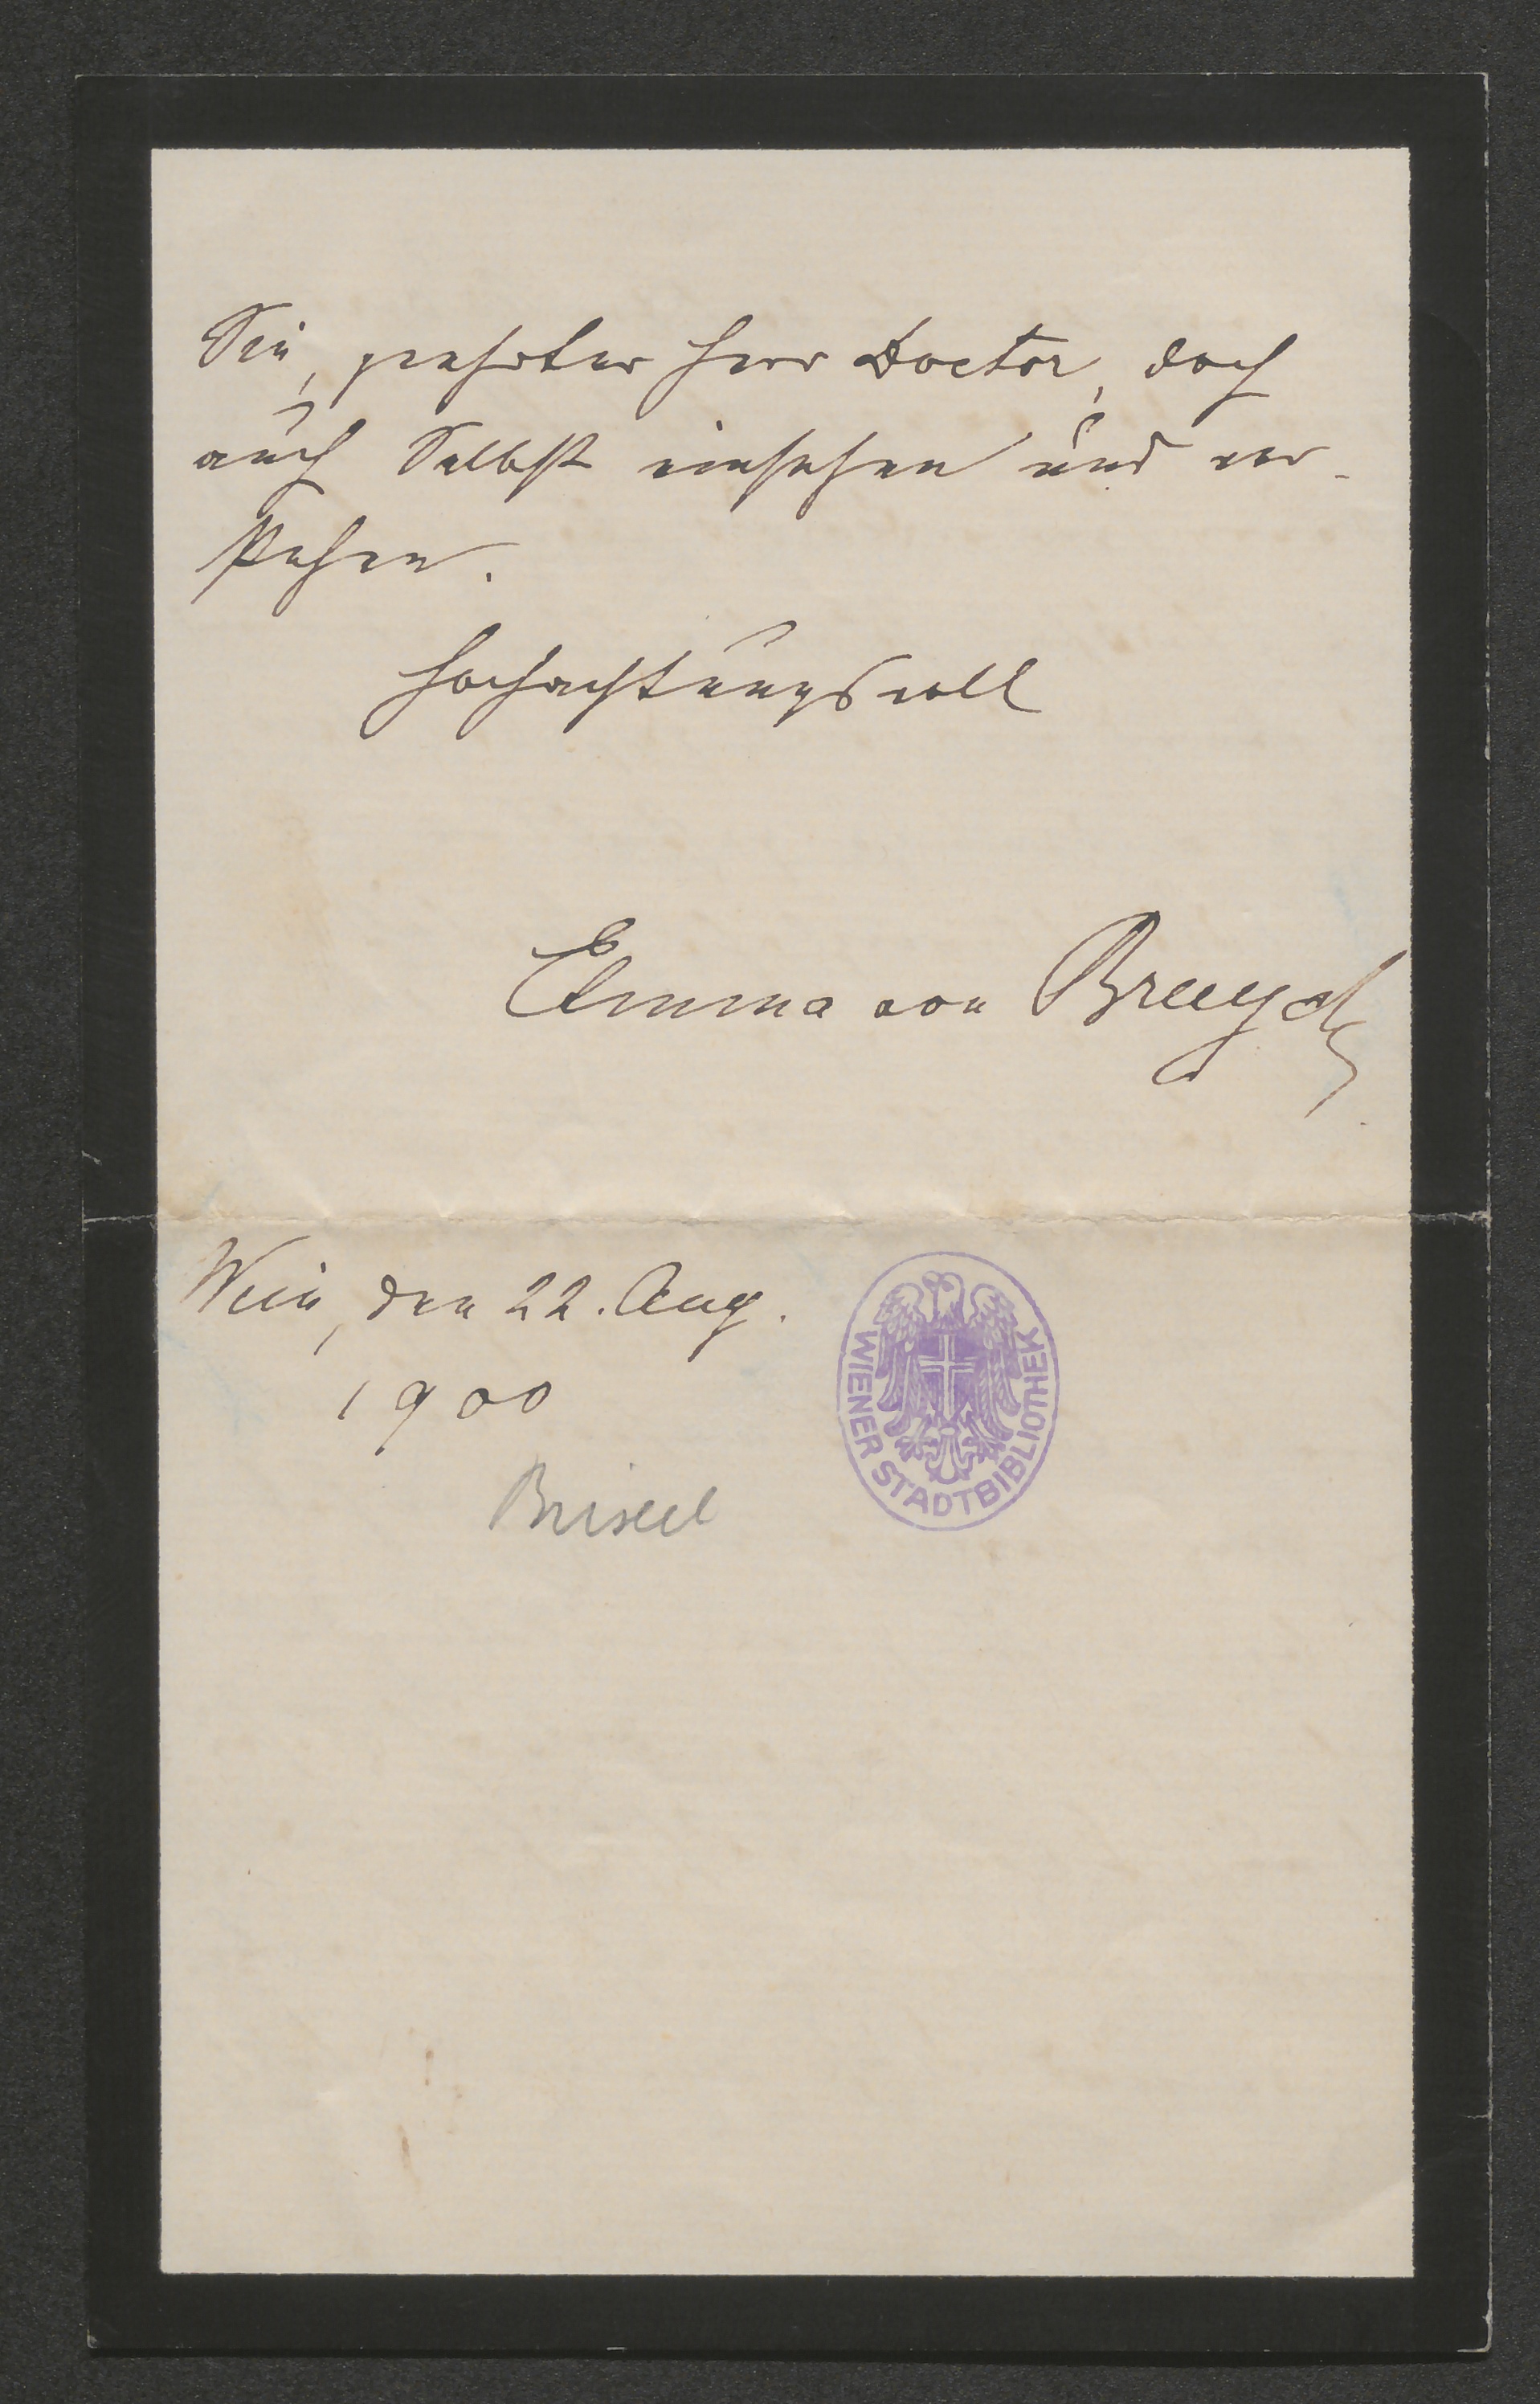 Sie, geehrter Herr Doctor, doch
auch Selbst einsehen und ver-
stehen.
Hochachtungsvoll
Emma von
Wien, den 22. Aug.
1900
WIENER STADTBIBLIOTHEK